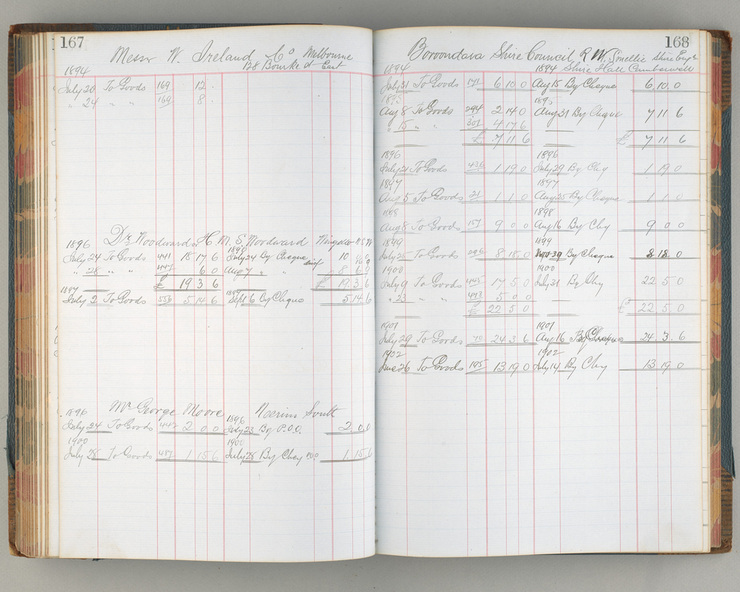 167
Messrs W. Ireland & Co Melbourne
128 Bourke St East
1894
July 20 To Goods 169 12 -
" 24 " " 169 8 -
1896 Dr Woodward H M E Woodward
July 24 To Goods 441 18 17 6 July 24 By Cheque 10
" 28 " " 6 0 Aug 7 " 8
£ 19 3 6 £ 19 3 6
1897
July 2 To Goods 553 5 14 6 Sept 6 By Cheque 5 14 6
1896 Mr George Moore 1896 Neerim South
July 24 To Goods 442 2 0 0 July 22 By P.O.O. 2 0 0
1900 1900
July 25 To Goods 457 1 15 6 July 28 By Chq 1 15 6
168
Boroondara Shire Council R W Smellie Shire Engr
1894 1894 Shire Hall Camberwell
July 31 To Goods 171 6 10 0 Aug 15 By Cheque 6 10 0
1895 1895
Aug 8 To Goods 294 2 14 0 Aug 31 By Cheque 7 11 6
" 15 " " 301 4 17 6
£ 7 11 6 £ 7 11 6
1896 1896
July 21 To Goods 1 19 0 July 29 By Chq 1 19 0
1897 1897
Aug 5 To Goods 21 1 1 0 Aug 25 By Cheque 1 1 0
1898 1898
Aug 8 To Goods 157 9 0 0 Aug 16 By Chq 9 0 0
1899 1899
July 25 To Goods 296 8 18 0 By Cheque 8 18 0
1900 1900
July 9 To Goods 443 17 5 0 July 31 By Chq 22 5 0
" 23 " " 493 5 0 0
£ 22 5 0 £ 22 5 0
1901 1901
July 29 To Goods 75 24 3 6 Aug 16 By Cheque 24 3 6
1902 1902
June 26 To Goods 145 13 19 0 July 14 By Chq 13 19 0